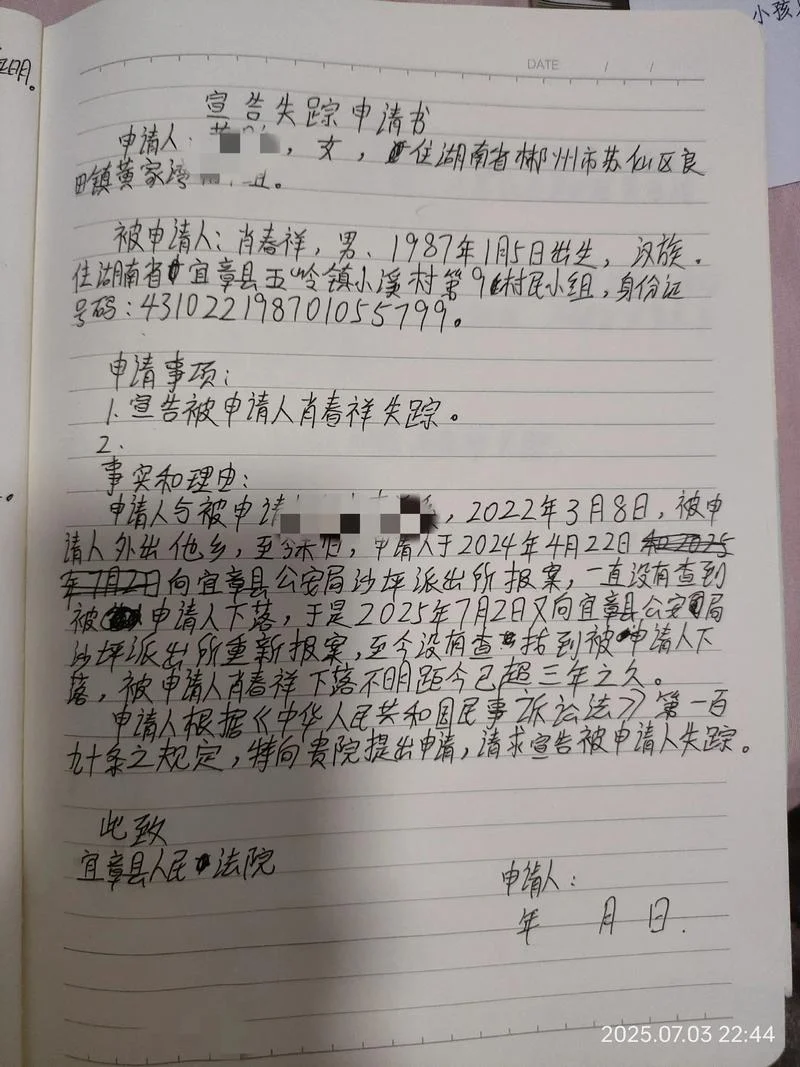 小孩
明。
DATE / /
宣告失踪申请书
申请人:，女，住湖南省郴州市苏仙区良
田镇黄家湾。
被申请人：肖春祥，男、1987年1月5日出生，汉族.
住湖南省宜章县五岭镇小溪村第9村民小组，身份证
号码：431022198701055799。
申请事项：
1.宣告被申请人肖春祥失踪。
2.
事实和理由：
申请人与被申请，2022年3月8日，被申
请人外出他乡，至今未归，申请人于2024年4月22日和2025
年7月2日向宜章县公安局沙坪派出所报案，一直没有查到
被申请人下落，于是2025年7月2日又向宜章县公安局
沙坪派出所重新报案，至今没有查找到被申请人下
落，被申请人肖春祥下落不明距今已超三年之久。
申请人根据《中华人民共和国民事诉讼法》第一百
九十条之规定，特向贵院提出申请，请求宣告被申请人失踪。
此致
宜章县人民法院
申请人：
年 月 日.
2025.07.03 22:44